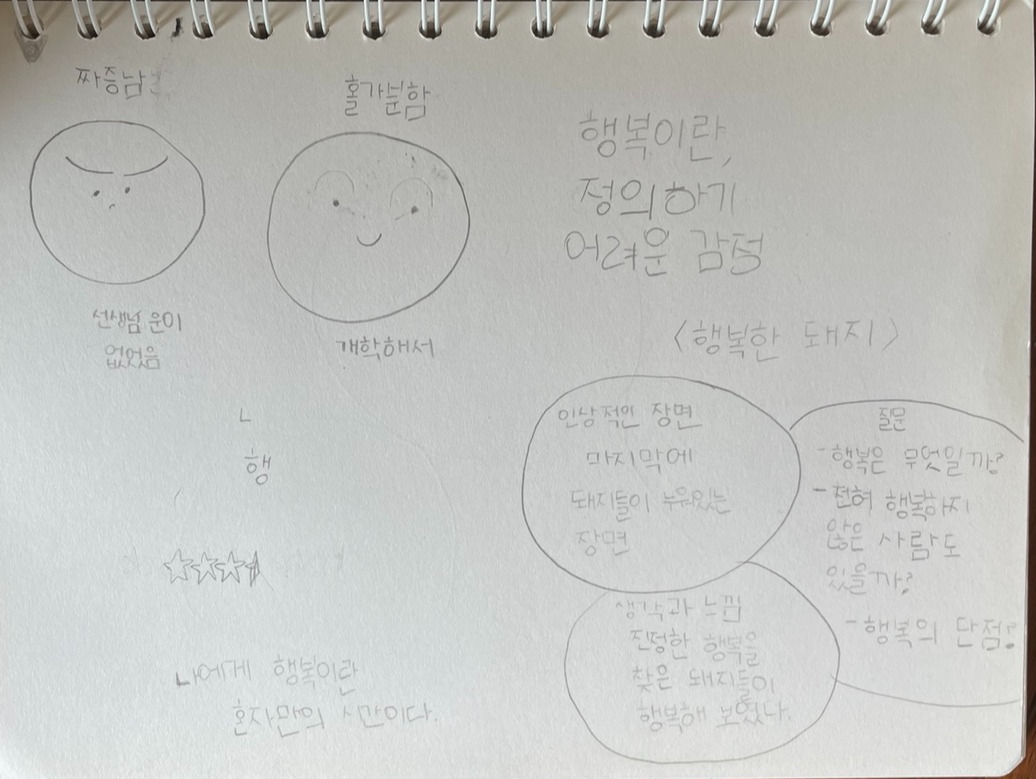 짜증남
홀가분함
선생님 운이
없었음
개학해서
ㄴ
행
나에게 행복이란
혼자만의 시간이다.
행복이란,
정의하기
어려운 감정
<행복한 돼지>
인상적인 장면
마지막에
돼지들이 누워있는
장면
질문
-행복은 무엇일까?
-전혀 행복하지
않은 사람도
있을까?
-행복의 단점?
생각과 느낌
진정한 행복을
찾은 돼지들이
행복해 보였다.